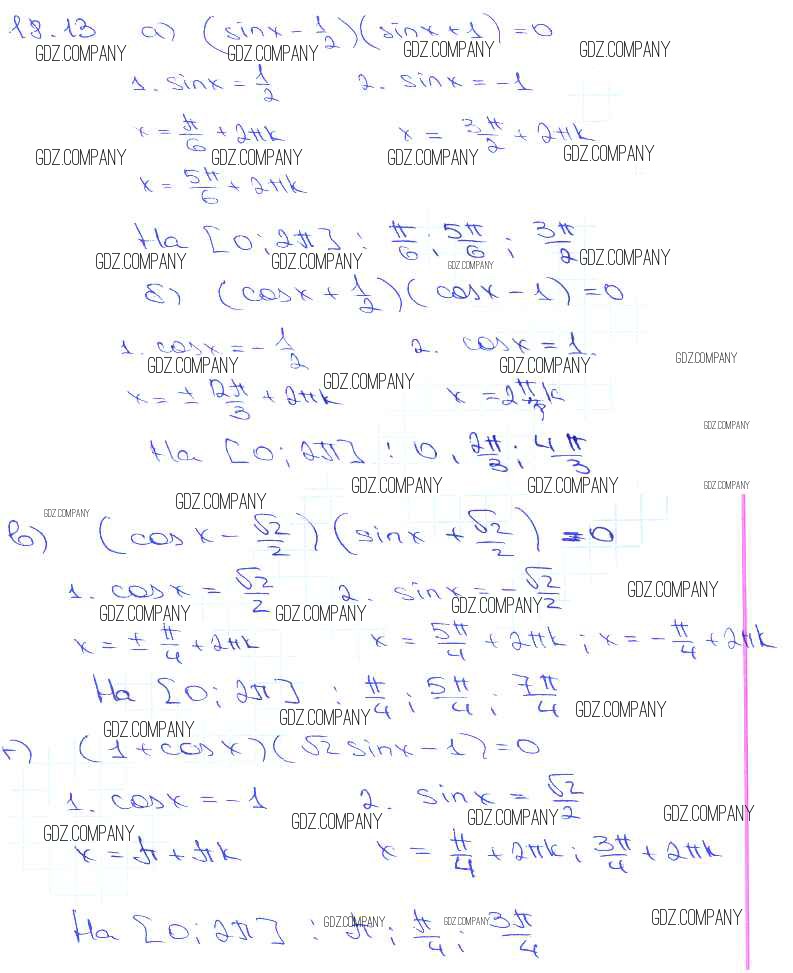 18.13 а) (sinx - 1/2)(sinx + 1) = 0
GDZ.COMPANY GDZ.COMPANY GDZ.COMPANY GDZ.COMPANY
1. sinx = 1/2 2. sinx = -1
x = π/6 + 2πk x = 3π/2 + 2πk
GDZ.COMPANY GDZ.COMPANY GDZ.COMPANY GDZ.COMPANY
x = 5π/6 + 2πk
На [0; 2π] : π/6; 5π/6; 3π/2
GDZ.COMPANY GDZ.COMPANY GDZ.COMPANY GDZ.COMPANY
б) (cosx + 1/2)(cosx - 1) = 0
1. cosx = -1/2 2. cosx = 1.
GDZ.COMPANY GDZ.COMPANY GDZ.COMPANY
GDZ.COMPANY
x = ± 2π/3 + 2πk x = 2πk
GDZ.COMPANY
На [0; 2π] : 0, 2π/3; 4π/3
GDZ.COMPANY GDZ.COMPANY GDZ.COMPANY
GDZ.COMPANY GDZ.COMPANY
в) (cosx - √2/2)(sinx + √2/2) = 0
1. cosx = √2/2 2. sinx = -√2/2
GDZ.COMPANY
GDZ.COMPANY GDZ.COMPANY GDZ.COMPANY
x = ± π/4 + 2πk x = 5π/4 + 2πk; x = -π/4 + 2πk
На [0; 2π] : π/4; 5π/4; 7π/4
GDZ.COMPANY GDZ.COMPANY GDZ.COMPANY
г) (1 + cosx)(√2 sinx - 1) = 0
1. cosx = -1 2. sinx = √2/2
GDZ.COMPANY GDZ.COMPANY GDZ.COMPANY GDZ.COMPANY
x = π + πk x = π/4 + 2πk; 3π/4 + 2πk
На [0; 2π] : π; π/4; 3π/4
GDZ.COMPANY GDZ.COMPANY GDZ.COMPANY